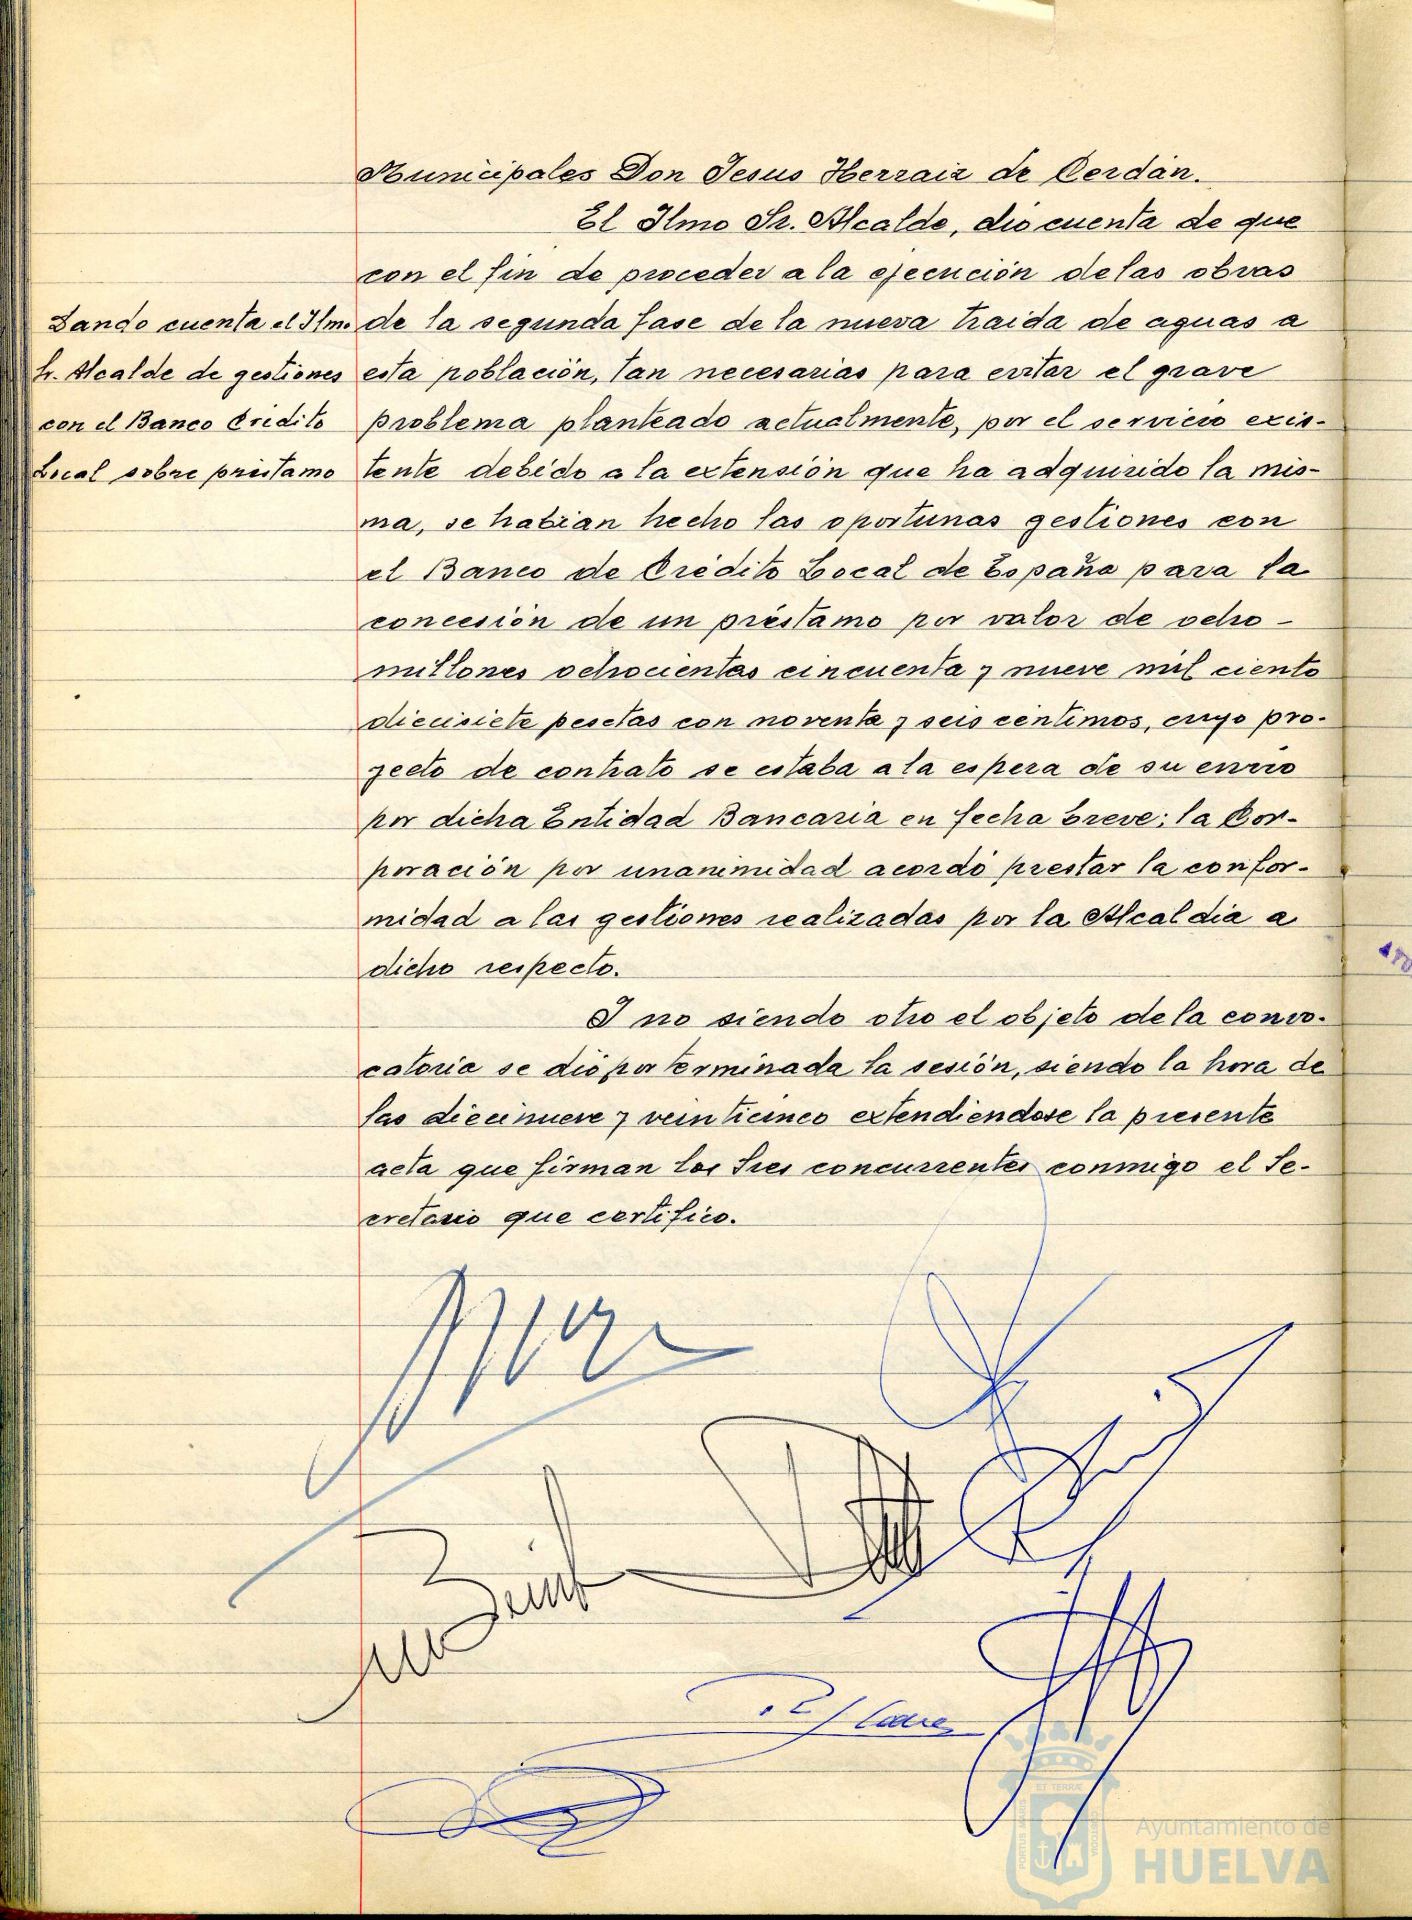 Municipales Don Jesus Herraiz de Cerdán.
El Ilmo Sr. Alcalde, dio cuenta de que
con el fin de proceder a la ejecución de las obras
Dando cuenta el Ilmo.
Sr. Alcalde de gestiones
con el Banco Crédito
Local sobre préstamo
de la segunda fase de la nueva traida de aguas a
esta población, tan necesarias para evitar el grave
problema planteado actualmente, por el servicio exis-
tente debido a la extensión que ha adquirido la mis-
ma, se habian hecho las oportunas gestiones con
el Banco de Crédito Local de España para la
concesión de un préstamo por valor de ocho-
millones ochocientas cincuenta y nueve mil ciento
diecisiete pesetas con noventa y seis céntimos, cuyo pro-
yecto de contrato se estaba a la espera de su envio
por dicha Entidad Bancaria en fecha breve; la Cor-
poración por unanimidad acordó prestar la confor-
midad a las gestiones realizadas por la Alcaldia a
dicho respecto.
Y no siendo otro el objeto de la convo-
catoria se dió por terminada la sesión, siendo la hora de
las diecinueve y veinticinco extendiendose la presente
acta que firman los Sres concurrentes conmigo el Se-
cretario que certifico.
ET TERRÆ
PORTUS MARIS
CUSTODIA
Ayuntamiento de
HUELVA